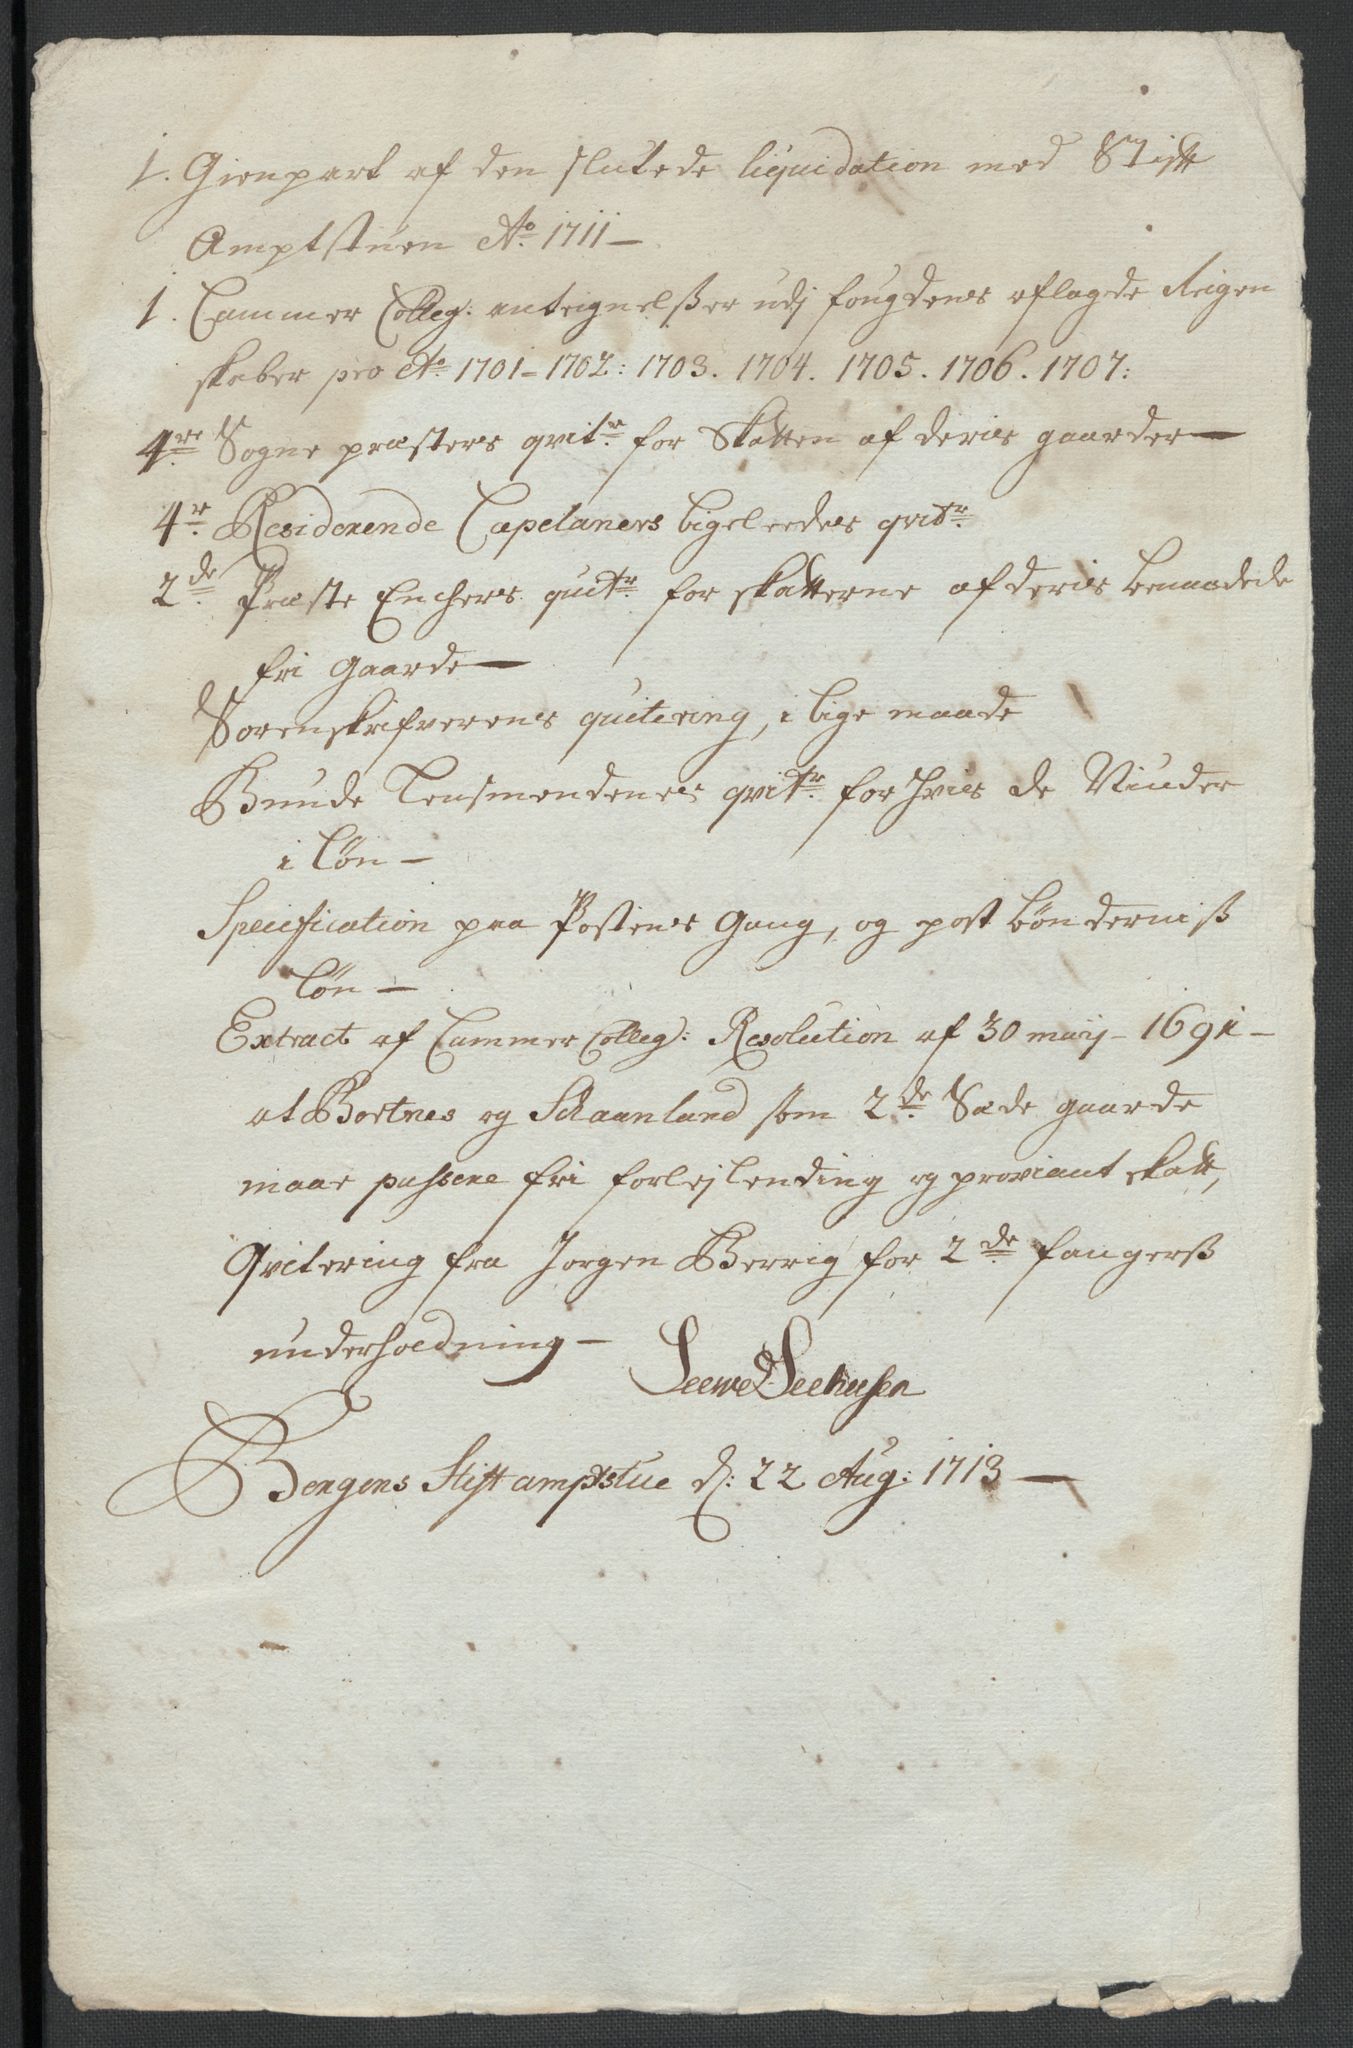 1. Gienpart af den slutede liquidation med Stift
Amptstuen Ao. 1711 –
1. Cammer Colleg: anteignelßer udj fougdens aflagde Reigen
skaber pro Ao. 1701 – 1702: 1703. 1704. 1705. 1706. 1707:
4re Sogne præsters qvitr. for Skatten af deris gaarder —
4r. Residerende Capelaners ligeleedes qvitr.
2de. Præste Enchers quitr. for skatterne af deris benaadede
fri gaarde —
Sorenskrifverens quitering, i lige maade
Bunde Lensmendenes qvitr. for hvis de Niuder
i Løn –
Specification paa Postens Gang, og post bønderniß
Løn –
Extract af Cammer Colleg: Resolution af 30 maij – 1691 –
at Bortnes og Schaanland som 2de. Sæde gaarde
maae passere fri forlejlending og proviant skatt,
Qvitering fra Jorgen Berrig for 2de fangerß
underholdning –
Seewe Seehusen
Bergens Stiftamptstue d: 22 Aug: 1713 —